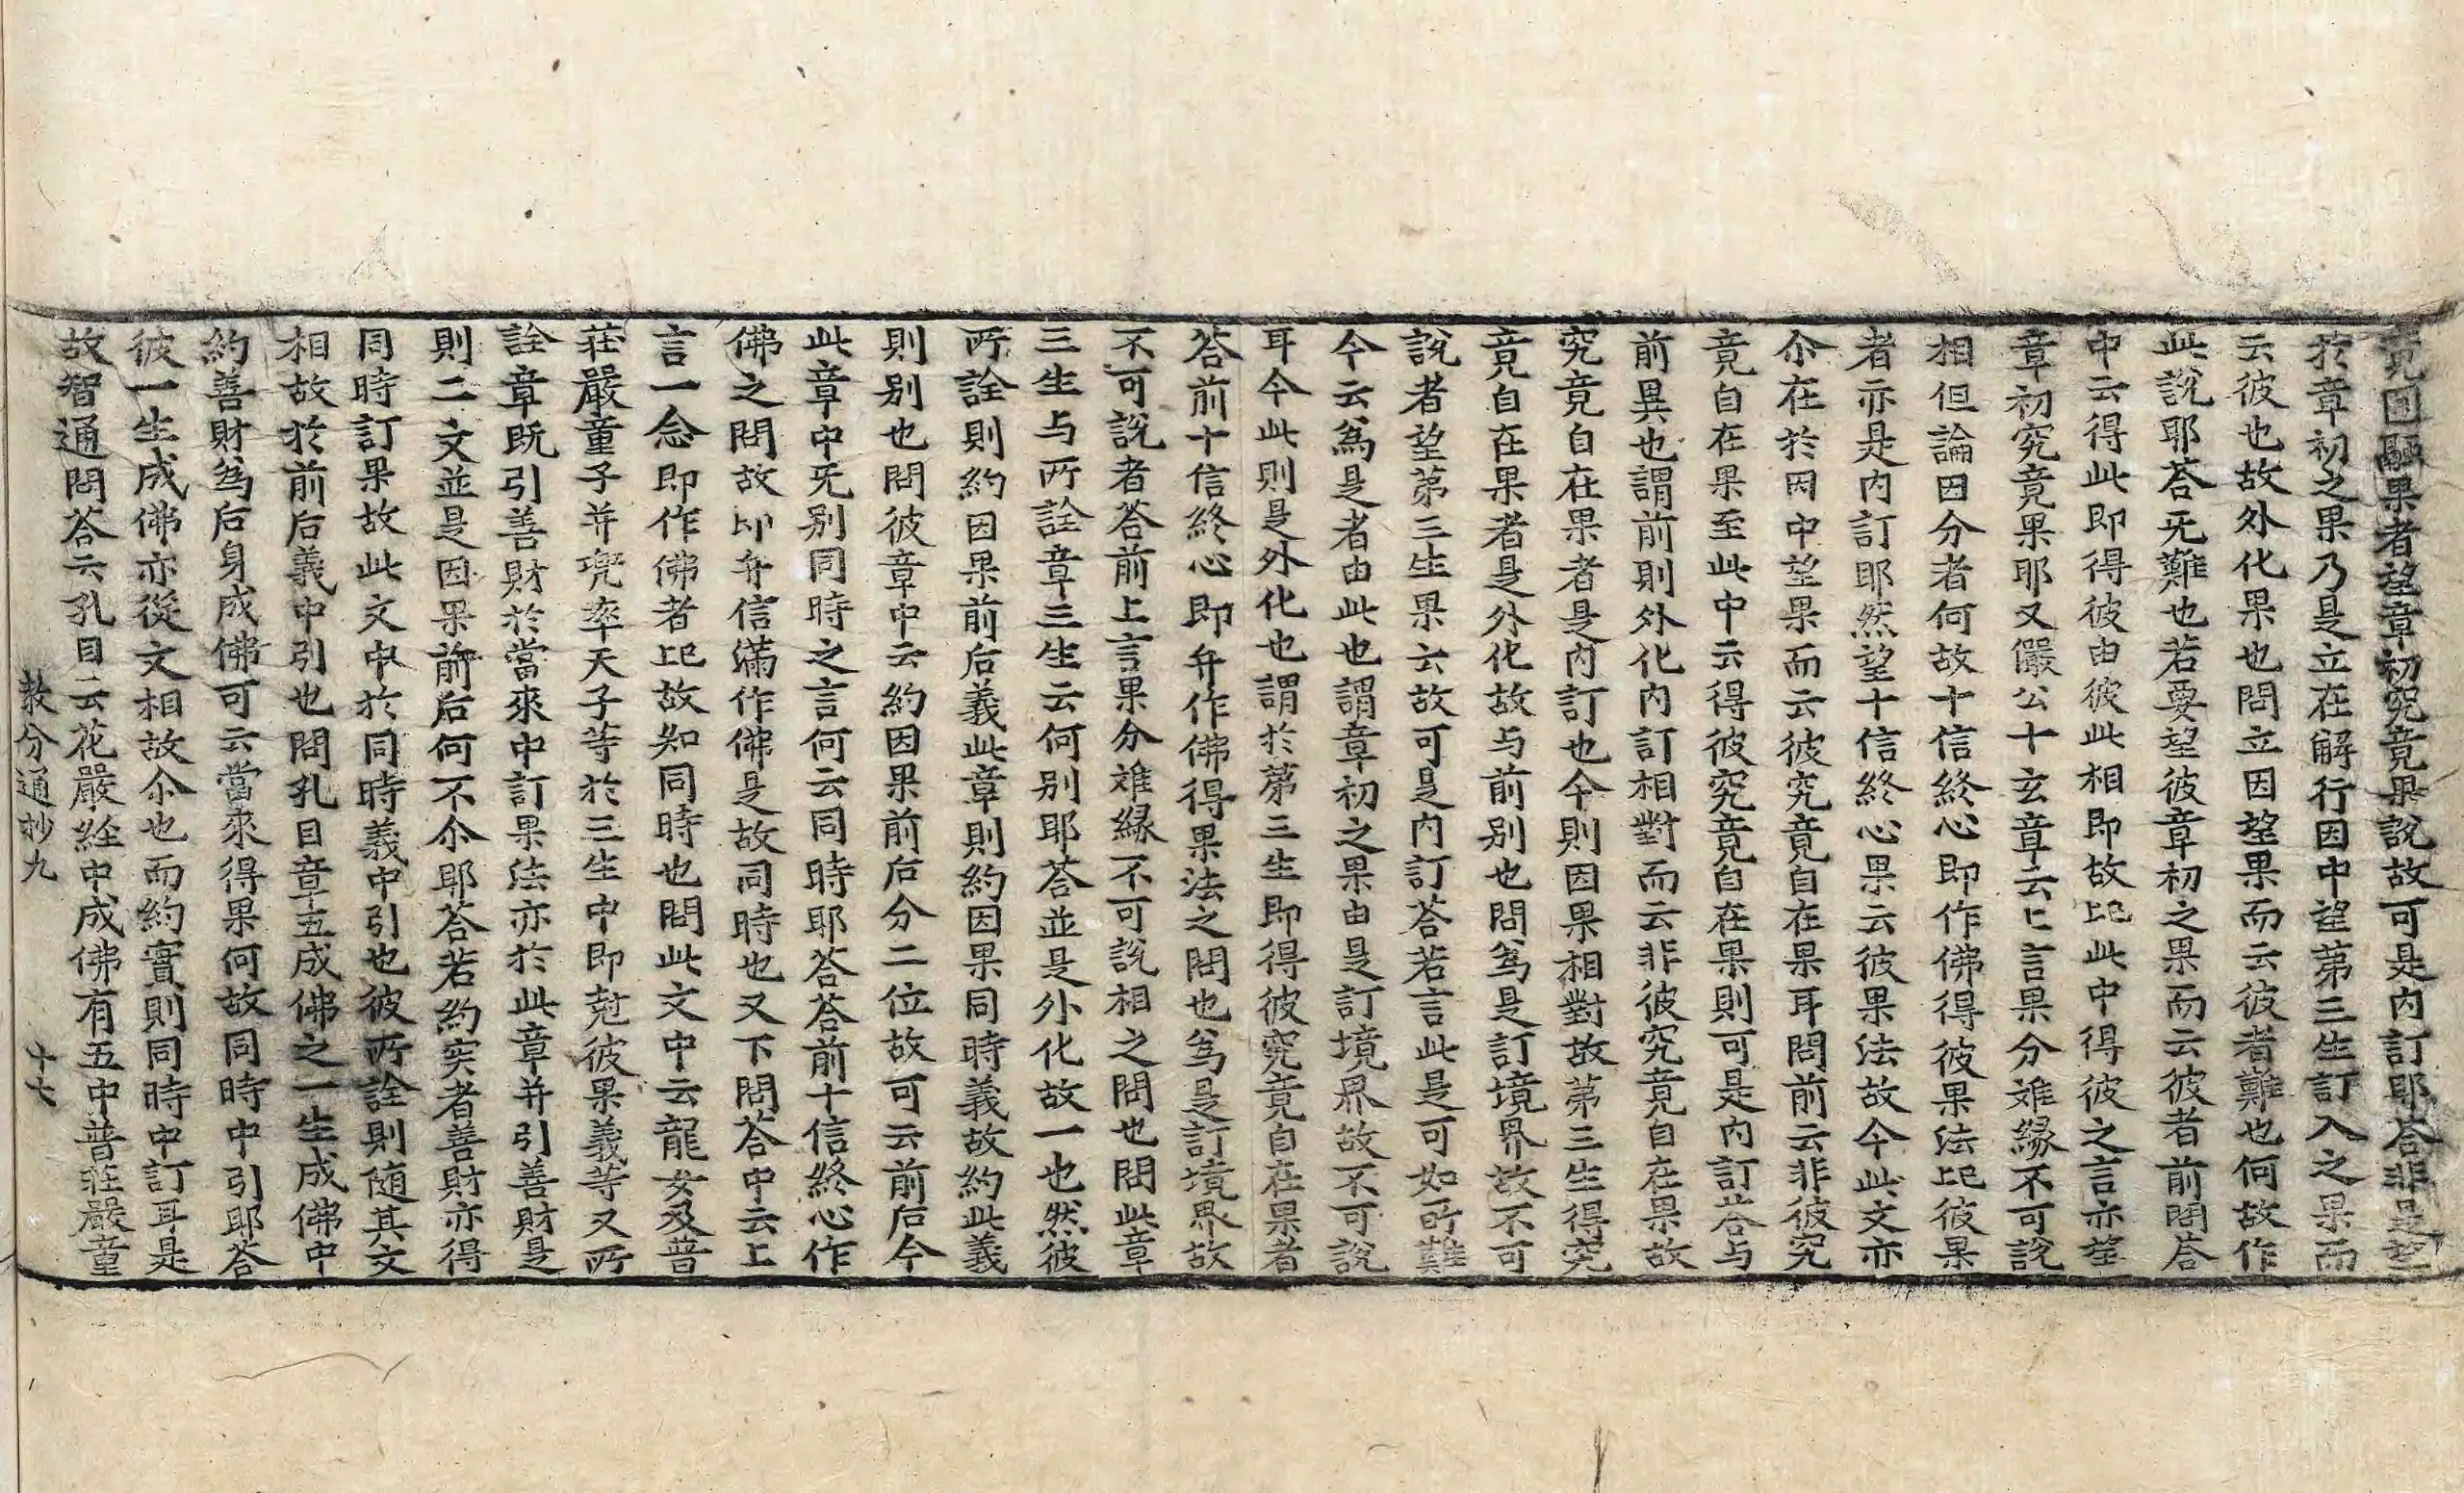 竟圓融果者望章初究竟果說故可是內訂耶荅非是望
於章初之果乃是立在解行因中望第三生訂入之果而
云彼也故外化果也問立因望果而云彼者難也何故作
此說耶荅旡難也若要望彼章初之果而云彼者前問荅
中云得此即得彼由彼此相即故比此中得彼之言亦望
章初究竟果耶又儼公十玄章云上言果分难緣不可說
相但論因分者何故十信終心即作佛得彼果法比彼果
者亦是內訂耶然望十信終心果云彼果法故今此文亦
尒在於因中望果而云彼究竟自在果耳問前云非彼究
竟自在果至此中云得彼究竟自在果則可是內訂荅与
前異也謂前則外化內訂相對而云非彼究竟自在果故
究竟自在果者是內訂也今則因果相對故第三生得究
竟自在果者是外化故与前别也問爲是訂境界故不可
說者望第三生果云故可是內訂荅若言此是可如所難
今云爲是者由此也謂章初之果由是訂境界故不可說
耳今此則是外化也謂於第三生即得彼究竟自在果者
荅前十信終心即弁作佛得果法之問也爲是訂境界故
不可說者荅前上言果分难緣不可說相之問也問此章
三生与所詮章三生云何别耶荅並是外化故一也然彼
所詮則約因果前后義此章則約因果同時義故約此義
則别也問彼章中云約因果前后分二位故可云前后今
此章中旡别同時之言何云同時耶荅荅前十信終心作
佛之問故即弁信滿作佛是故同時也又下問荅中云上
言一念即作佛者比故知同時也問此文中云龍女及普
莊嚴童子并兜率天子等於三生中即尅彼果義等又所
詮章旣引善財於當來中訂果法亦於此章并引善財是
則二文並是因果前后何不尒耶荅若約实者善財亦得
同時訂果故此文中於同時義中引也彼所詮則随其文
相故於前后義中引也問孔目章五成佛之一生成佛中
約善財爲后身成佛可云當來得果何故同時中引耶荅
彼一生成佛亦從文相故尒也而約實則同時中訂耳是
故智通問荅云孔目云花嚴經中成佛有五中普莊嚴童
教分通抄九 十七